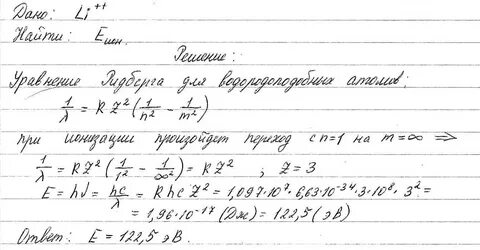 Дано: Li⁺⁺
Найти: Eион.
Решение:
Уравнение Ридберга для водородоподобных атомов:
1/λ = R Z² (1/n² - 1/m²)
при ионизации произойдет переход с n=1 на m=∞ ⇒
1/λ = R Z² (1/1² - 1/∞²) = R Z² , Z = 3
E = hν = hc/λ = R h c Z² = 1,097·10⁷·6,63·10⁻³⁴·3·10⁸·3² =
= 1,96·10⁻¹⁷ (Дж) = 122,5 (эВ)
Ответ: E = 122,5 эВ.